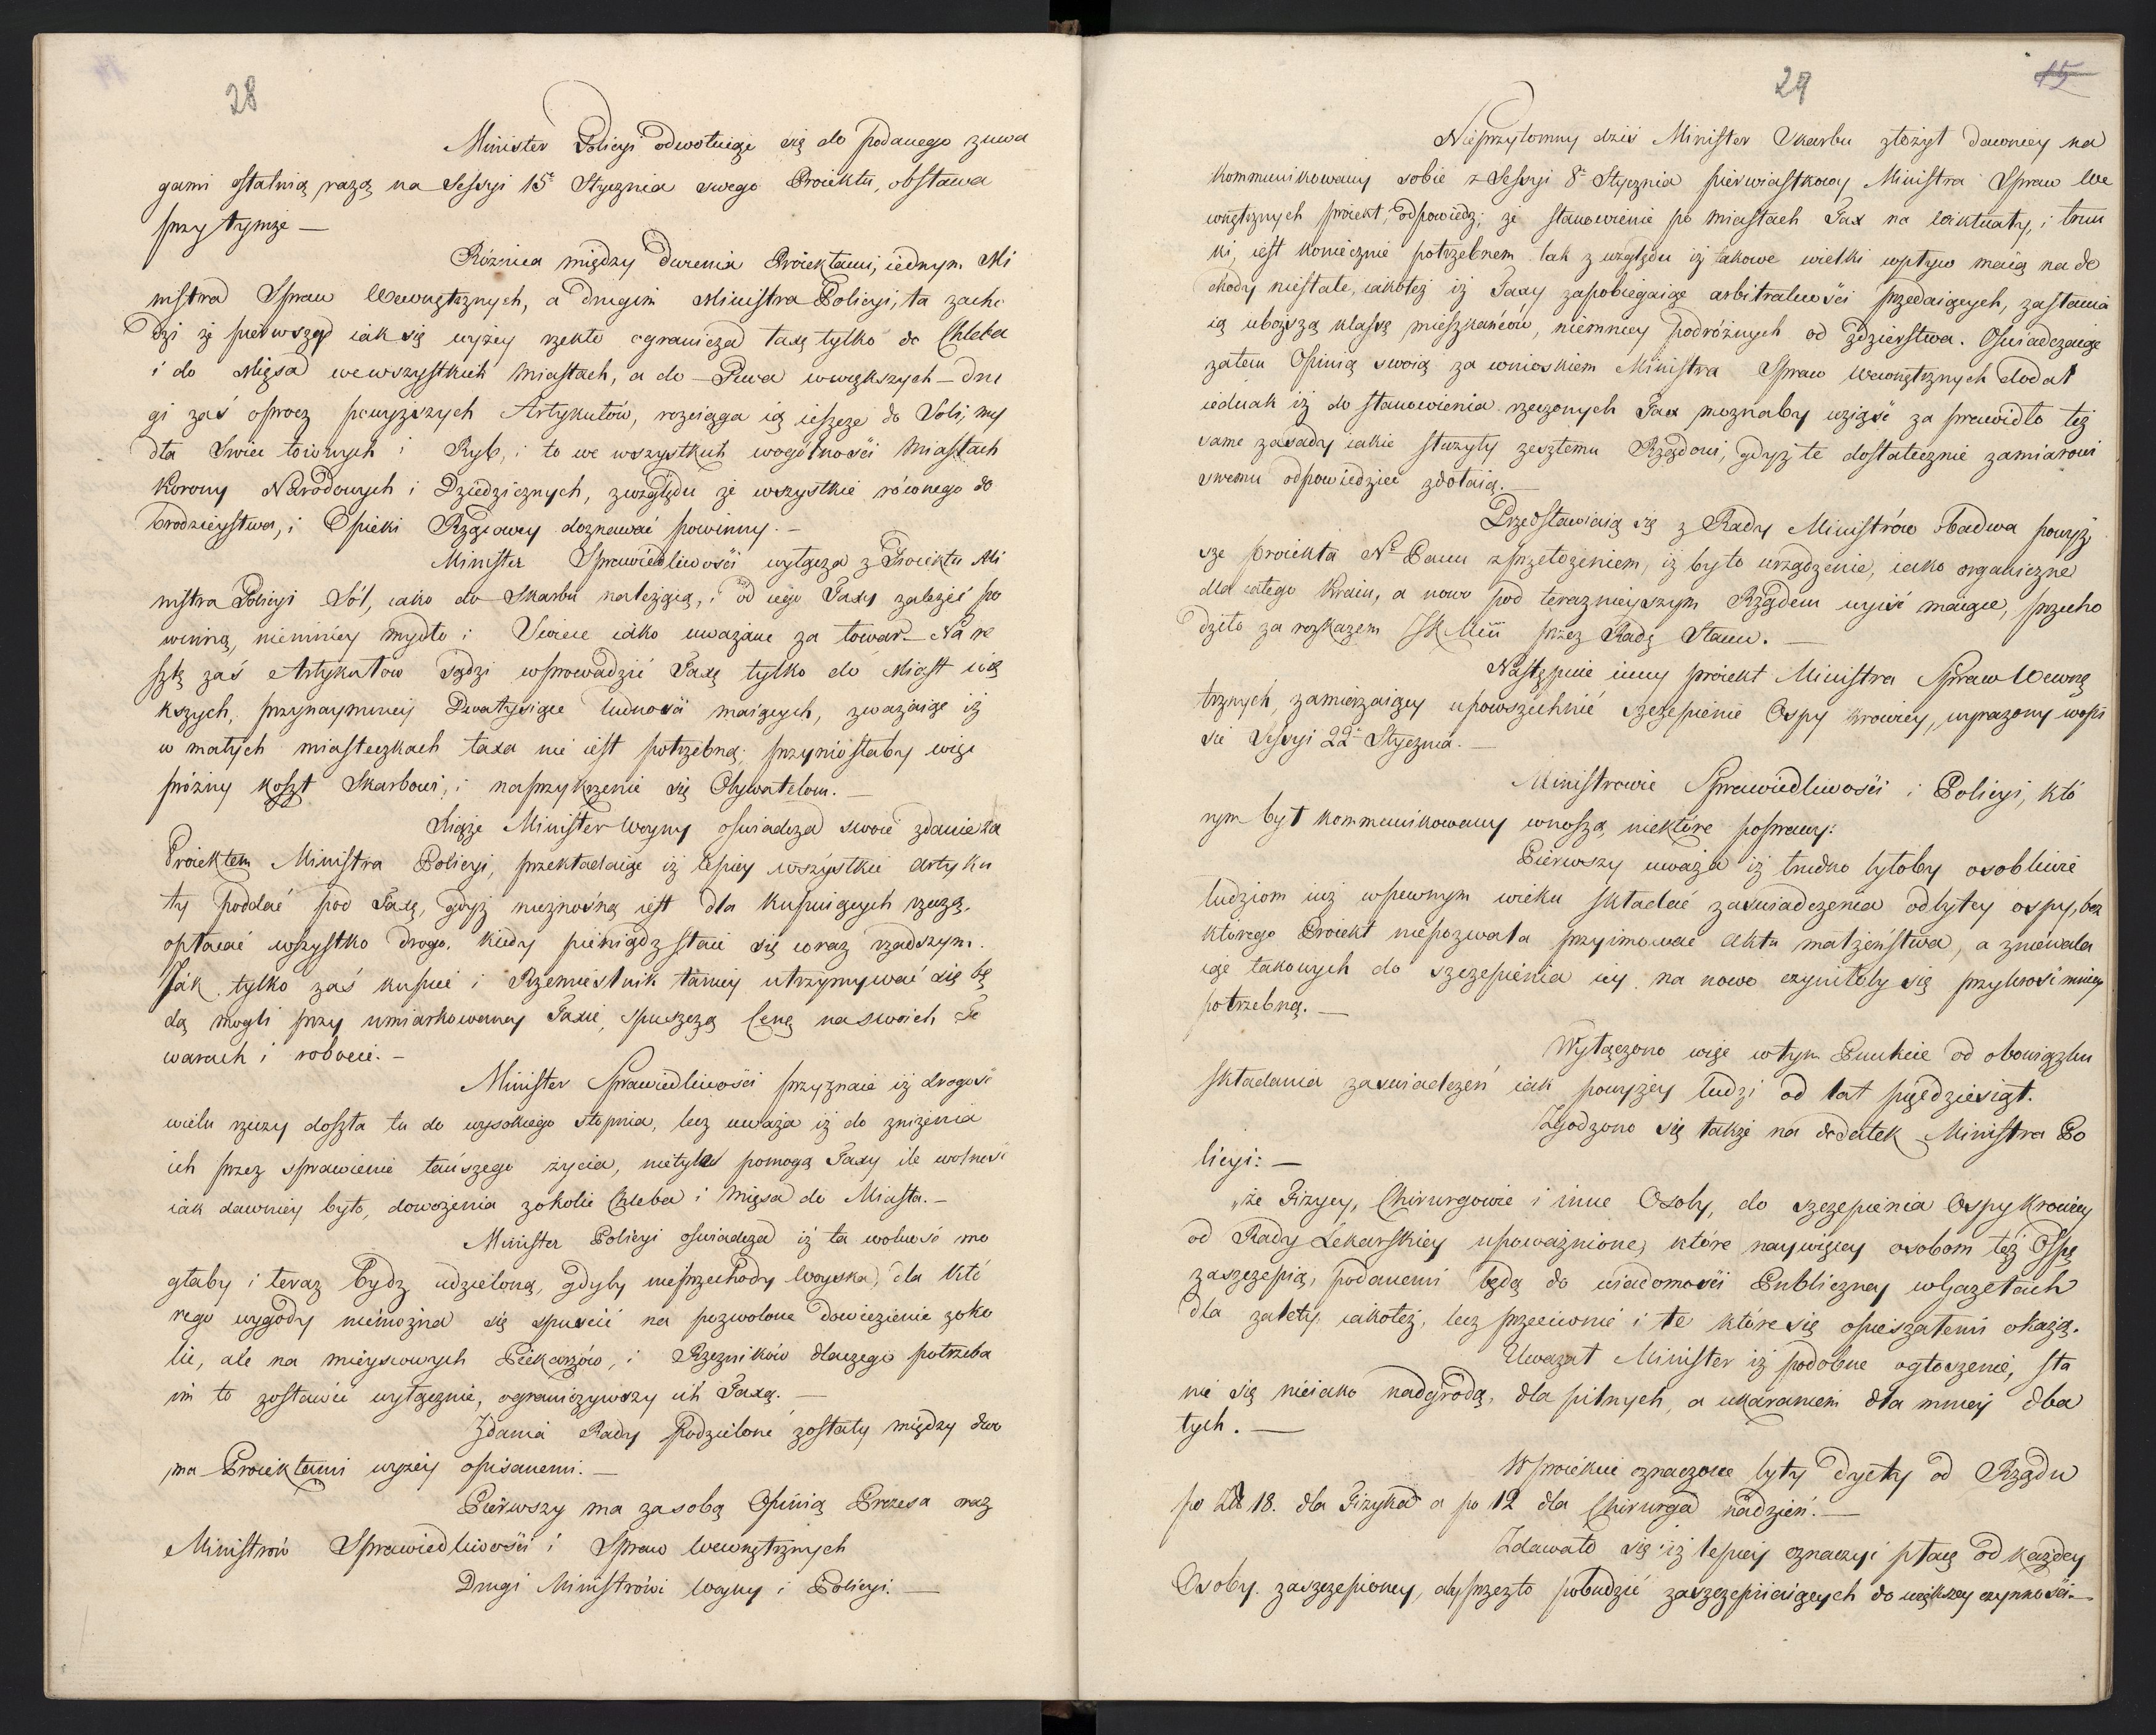 28
Minister Policyi odwołuiąc się do podanego z uwa
gami ostatnią razą na Sessyi 15ᵉ Stycznia swego Proiektu, obstawa
przy tymże —
Różnica między dwiema Proiektami, iednym Mi
nistra Spraw Wewnętrznych, a drugim Ministra Policyi, ta zacho
dzi że pierwszy iak się wyżey rzekło ogranicza taxę tylko do Chleba
i do Mięsa we wszystkich Miastach, a do Piwa w większych — dru
gi zaś oprocz powyższych Artykułów, rozciąga ią ieszcze do Soli, my
dła Swiec łoiowych i Ryb, i to we wszystkich wogólności Miastach
Korony Narodowych i Dziedzicznych, z względu że wszystkie równego do
brodzieystwa, i Opieki Rządowey doznawać powinny. —
Minister Sprawiedliwości wyłącza z Proiektu Mi
nistra Policyi Sól, iako do Skarbu należącą, i od iego Taxy zależeć po
winną, niemniey mydło i Swiece iako uważane za towar — Na re
sztę zaś Artykułów sądzi wprowadzić Taxę tylko do Miast wię
kszych, przynaymniey Dwatysiące ludności maiących, zważaiąc iż
w małych miasteczkach taxa nie iest potrzebną, przyniosłaby więc
próżny koszt Skarbowi, i naprzykrzenie się Obywatelom. —
Xiąże Minister Woyny oświadcza swoie zdanie za
Proiektem Ministra Policyi, przekładaiąc iż lepiey wszystkie Artyku
ły poddać pod Taxę, gdyż nieznośną iest dla kupuiących rzeczą,
opłacać wszystko drogo, kiedy pieniądz staie się coraz rzadszym.
Jak tylko zaś kupiec i Rzemieślnik taniey utrzymywać się bę
dą mogli przy umiarkowaney Taxie, spuszczą Cenę na swoich To
warach i robocie. —
Minister Sprawiedliwości przyznaie iż drogość
wielu rzeczy doszła tu do wysokiego stopnia, lecz uważa iż do zniżenia
ich przez sprawienie tańszego życia, nietyle pomogą Taxy ile wolność
iak dawniey było, dowożenia z okolic Chleba i Mięsa do Miasta. —
Minister Policyi oświadcza iż ta wolność mo
głaby i teraz bydz udzieloną, gdyby nie przechody Woyska, dla Któ
rego wygody niemożna się spuścić na pozwolone dowiezienie z oko
lic, ale na mieyscowych Piekarzów, i Rzeźników dlaczego potrzeba
im to zostawić wyłącznie, ograniczywszy ich Taxą. —
Zdania Rady Podzielone zostały między dwo
ma Proiektami wyżey opisanemi. —
Pierwszy ma za sobą Opinią Prezesa oraz
Ministrów Sprawiedliwości i Spraw Wewnętrznych
Drugi Ministrów Woyny i Policyi. —
29
15
Nieprzytomny dziś Minister Skarbu złożył dawniey na
kommunikowany sobie z Sessyi 8ᵉ Stycznia pierwiastkowy Ministra Spraw We
wnętrznych proiekt, odpowiedź; że stanowienie po Miastach Tax na wiktuały, i trun
ki, iest koniecznie potrzebnem tak z względu iż takowe wielki wpływ maią na do
chody niestałe, iakoteż iż Taxy zapobiegaiąc arbitralności przedaiących, zastania
ią uboższą klassę mieszkańców, niemniey podróżnych od zdzierstwa. Oświadczaiąc
zatem Opinią swoią za wnioskiem Ministra Spraw Wewnętrznych dodał
iednak iż do stanowienia rzeczonych Tax możnaby wziąść za prawidło też
same zasady iakie służyły zeszłemu Rządowi, gdyż te dostatecznie zamiarowi
swemu odpowiedzieć zdołaią. —
Przedstawiaią się z Rady Ministrów obadwa powyż
sze proiekta N° Panu z przełożeniem, iż było urządzenie, iako organiczne
dla całego Kraiu, a nowo pod teraznieyszym Rządem wyiść maiące, przecho
dziło za rozkazem JKMci przez Radę Stanu. —
Następuie inny proiekt Ministra Spraw Wewnę
trznych, zamierzaiący upowszechnić szczepienie Ospy krowiey, wyrażony wopi
sie Sessyi 22ᵉ Stycznia. —
Ministrowie Sprawiedliwości i Policyi, któ
rym był kommunikowany wnoszą niektóre poprawy:
Pierwszy uważa iż trudno byłoby osobliwie
ludziom iuż w pewnym wieku składać zaswiadczenia odbytey ospy, bez
ktorego Proiekt niepozwala przyimować Aktu małżeństwa, a zniewala
iąc takowych do szczepienia iey na nowo czyniłoby się przykrość mniey
potrzebną. —
Wyłączono więc w tym Punkcie od obowiązku
składania zaswiadczeń iak powyżey ludzi od lat pięćdziesiąt.
Zgodzono się także na dodatek Ministra Po
licyi: —
„że Fizycy, Chirurgowie i inne Osoby, do szczepienia Ospy Krowiey
od Rady Lekarskiey upoważnione, które naywięcey osobom też Ospę
zaszczepią, podanemi będą do wiadomości Publiczney w Gazetach
dla zalety, iakoteż, lecz przeciwnie i te które się opieszałemi okażą.
Uważał Minister iż podobne ogłoszenie, sta
nie się nieiako nadgrodą, dla pilnych, a ukaraniem dla mniey dba
łych. —
W proiekcie oznaczone były dyety od Rządu
po Zł 18. dla Fizyka a po 12 dla Chirurga nadzień. —
Zdawało się iż lepiey oznaczyć płacę od każdey
Osoby zaszczepioney, aby przezto pobudzić zaszczepiaiących do większey czynności. —